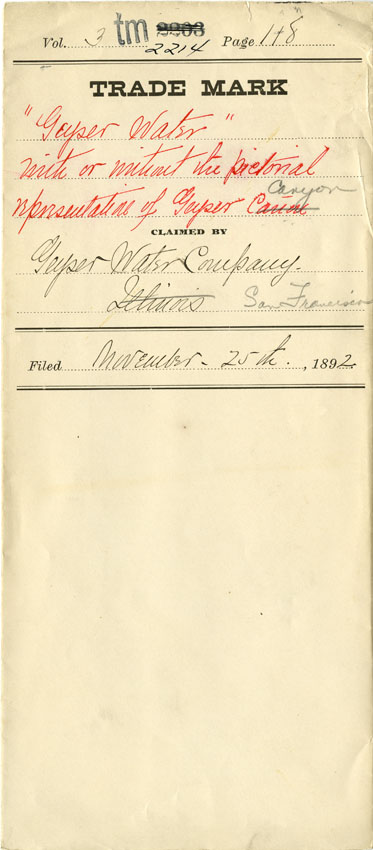 Vol. 3 tm 2203 Page 148
2214
TRADE MARK
"Geyser Water"
with or without the pictorial
Canyon
representation of Geyser Cañon
CLAIMED BY
Geyser Water Company.
Illinois San Francisco
Filed November 25th, 1892.